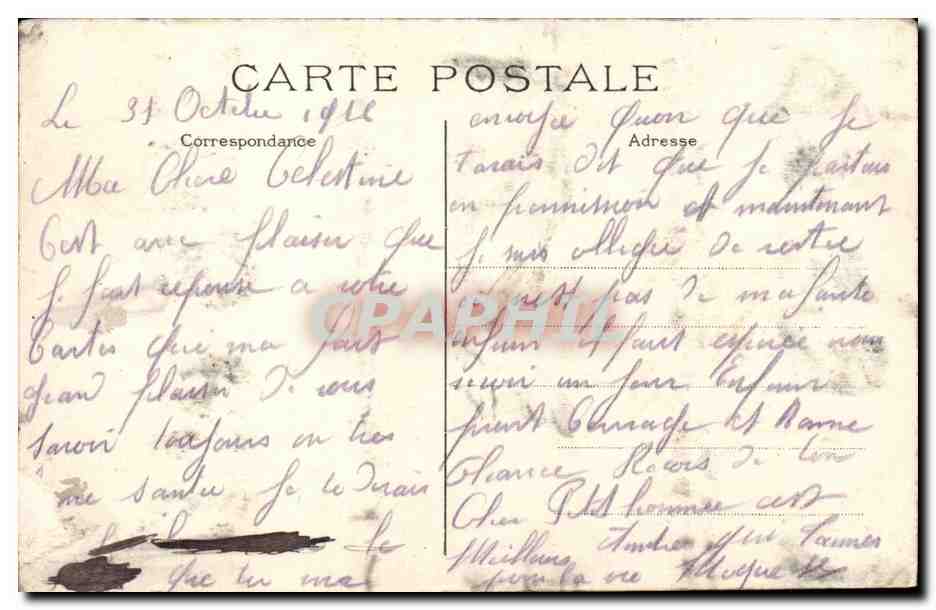 CARTE POSTALE
Correspondance
Adresse
Le 31 Octobre 1916
Ma Chère Celestine
Cest avec plaisir que
je fait reponse a votre
Cartes que ma fait
gran plaisir de vous
savoir toujours on tres
ne sante Je te dirais
Je
que tu ma
envoyée quon que je
tarais dit que je partais
en permission et maintenant
je suis olligée de restee
nest pas de ma faute
enfain il faut esperée nous
revoir un jour Enfain
prent Courage et Bonne
Chance Recois de ton
Cher Ptit homme cest
Meilleurs que
pour la vie
CPAPHIL